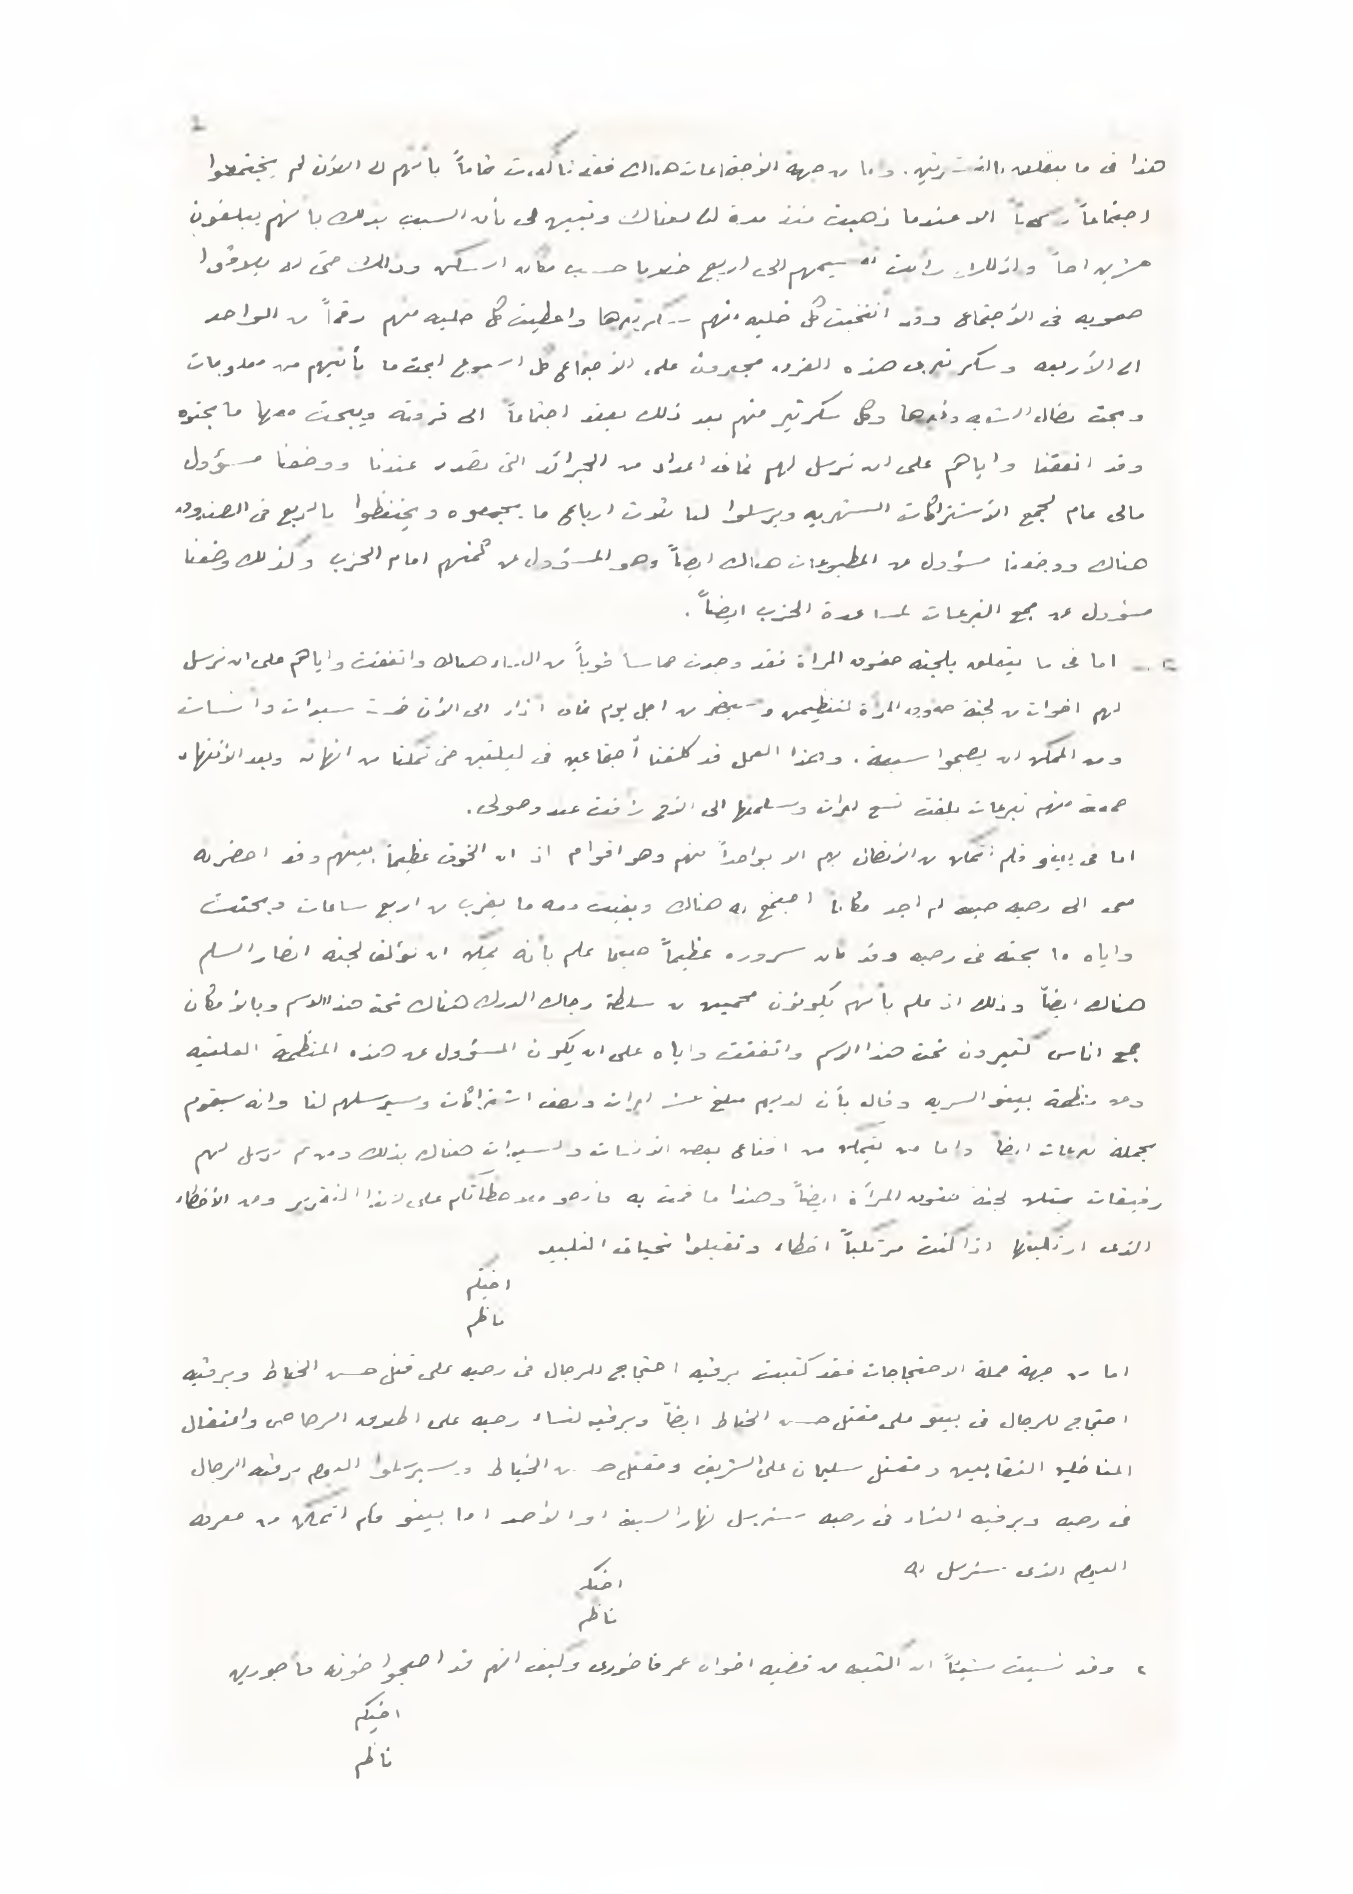 هذا فى ما يتعلق . واما من جهة الاجتماعات هناك فقد تأكدت تماماً بأنهم الى الآن لم يجتمعوا
اجتماعاً رسمياً الا عندما ذهبت منذ مدة الى هناك وتبين لى بأن السبب بذلك بأنهم يبلغون
ولذلك رأيت تقسيمهم الى اربع خلايا حسب مكان السكن وذلك حتى لا يلاقوا
صعوبه فى الاجتماع وقد انتخبت كل خليه منهم سكرتيرها واعطيت كل خليه منهم رقماً من الواحد
الى الاربعه وسكرتيرى هذه الفرق مجبرون على الاجتماع كل اسبوع لبحث ما يأتيهم من معلومات
وبحث نضال الشعب وكل سكرتير منهم بعد ذلك يعقد اجتماعاً الى فرقته ويبحث معها ما بحثوه
وقد اتفقنا واياهم على ان نرسل لهم ثمان اعداد من الجرائد التى تصدر عندنا ووضعنا مسؤول
مالى عام لجمع الاشتراكات الشهريه ويرسلوا لنا ثلاث ارباع ما يجمعوه ويحتفظوا بالربع فى الصندوق
هناك ووضعنا مسؤول عن المطبوعات هناك ايضاً وهو المسؤول عن ثمنهم امام الحزب وكذلك وضعنا
مسؤول عن جمع التبرعات لمساعدة الحزب ايضاً .
اما فى ما يتعلق بلجنه حقوق المرأة فقد وجدت حماسا قوياً من النساء هناك واتفقت واياهم على ان نرسل
لهم اخوات من لجنة حقوق المرأة لتنظيمهن من اجل يوم ثمان اذار الى الآن سيدات وآنسات
ومن الممكن ان يصبحوا سبعة . وهذا العمل قد كلفنا اجتماعين فى ليلتين حتى تمكنا من انهائه وبعد الانتهاء
جمعت منهم تبرعات بلغت تسع ليرات وسلمتها الى الاخ رفعت عند وصولى .
اما فى بينو فلم اتمكن من الاتصال بهم الا بواحداً منهم وهو اذ ان الخوف عظيماً بينهم وقد احضرته
معى الى رحبه حيث لم اجد مكاناً اجتمع به هناك وبقيت معه ما يقرب من اربع ساعات وبحثت
واياه ما بحثه فى رحبه وقد كان سروره عظيماً حينما علم بأنه يمكن ان نؤلف لجنه انصار السلم
هناك ايضاً وذلك اذ علم بأنهم يكونون محميين من سلطة رجال الدرك هناك تحت هذا الاسم وبالامكان
جمع اناس كثيرون تحت هذا الاسم واتفقت واياه على ان يكون المسؤول عن هذه المنظمة العلنيه
وعن منظمة بينو السريه وقال بأن لديهم مبلغ ليرات ونصف اشتراكات وسيرسلهم لنا وانه سيقوم
بحملة تبرعات ايضاً واما من يتمكن من اقناع بعض الانسات والسيدات هناك بذلك ومن ثم نرسل لهم
رفيقات يمثلن لجنة حقوق المرأة ايضاً وهذا ما قمت به فأرجو ملاحظاتكم على هذا التقرير وعن الأخطاء
الذى ارتكبتها اذا كنت مرتكباً اخطاء وتقبلوا تحيات القلبيه
اخيكم
ناظم
اما من جهة حملة الاحتجاجات فقد كتبت برقيه احتجاج للرجال فى رحبه على قتل حسن الخياط وبرقيه
احتجاج للرجال فى بينو على مقتل حسن الخياط ايضاً وبرقيه لنساء رحبه على اطلاق الرصاص واعتقال
المناضلين النقابيين ومقتل سليمان على الشريف ومقتل حسن الخياط وسيرسلوا اليوم برقيه الرجال
فى رحبه وبرقيه النساء فى رحبه سترسل نهار السبت او الاحد اما بينو فلم اتمكن من معرفه
اليوم الذى سترسل به
اخيكم
ناظم
وقد نسيت شيئاً ان اكتبه عن قضيه اخوان عمر فاخورى وكيف انهم قد اصبحوا خونه مأجورين
اخيكم
ناظم